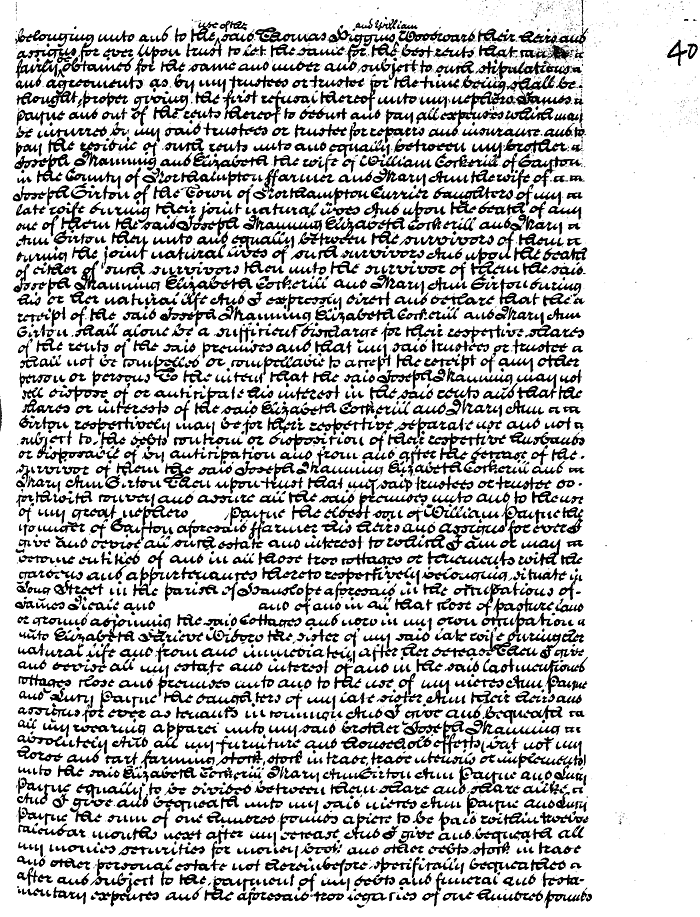 use of the and William
belonging unto and to the said Thomas Higgins Woodward their heirs and
assigns for ever Upon trust to let the same for the best rents that can be
fairly obtained for the same and under and subject to such stipulations
and agreements as by my trustees or trustee for the time being shall be
thought proper giving the first refusal thereof unto my nephew James
Payne and out of the rents thereof to deduct and pay all expenses which may
be incurred by my said trustees or trustee for repairs and insurance and to
pay the residue of such rents unto and equally between my brother
Joseph Manning and Elizabeth the wife of William Cockerill of Gayton
in the County of Northampton ffarmer and Mary Ann the wife of
Joseph Girton of the Town of Northampton Currier daughters of my
late wife during their joint natural lives And upon the death of any
one of them the said Joseph Manning Elizabeth Cockerill and Mary
Ann Girton then unto and equally between the survivors of them
during the joint natural lives of such survivors And upon the death
of either of such survivors then unto the survivor of them the said
Joseph Manning Elizabeth Cockerill and Mary Ann Girton during
his or her natural life And I expressly direct and declare that the
receipt of the said Joseph Manning Elizabeth Cockerill and Mary Ann
Girton shall alone be a sufficient discharge for their respective shares
of the rents of the said premises and that my said trustees or trustee
shall not be compelled or compellable to accept the receipt of any other
person or persons To the intent that the said Joseph Manning may not
sell dispose of or anticipate his interest in the said rents and that the
shares or interests of the said Elizabeth Cockerill and Mary Ann
Girton respectively may be for their respective separate use and not
subject to the debts control or disposition of their respective husbands
or disposable of by anticipation and from and after the decease of the
survivor of them the said Joseph Manning Elizabeth Cockerill and
Mary Ann Girton Then upon trust that my said trustees or trustee do
forthwith convey and assure all the said premises unto and to the use
of my great nephew Payne the eldest son of William Payne the
younger of Gayton aforesaid ffarmer his heirs and assigns for ever I
give and devise all such estate and interest to which I am or may
become entitled of and in all those two cottages or tenements with the
gardens and appurtenances thereto respectively belonging situate in
Long Street in the parish of Hanslope aforesaid in the occupations of
James and and of and in all that close of pasture land
or ground adjoining the said Cottages and now in my own occupation
unto Elizabeth the sister of my said late wife during her
natural life and from and immediately after her decease Then I give
and devise all my estate and interest of and in the said last mentioned
cottages close and premises unto and to the use of my nieces Ann Payne
and Lucy Payne the daughters of my late sister Ann their heirs and
assigns for ever as tenants in common And I give and bequeath
all my wearing apparel unto my said brother Joseph Manning
absolutely And all my furniture and household effects but not my
horse and cart farming stock stock in trade trade utensils or implements
unto the said Elizabeth Cockerill Mary Ann Girton Ann Payne and Lucy
Payne equally to be divided between them share and share alike
And I give and bequeath unto my said nieces Ann Payne and Lucy
Payne the sum of one hundred pounds apiece to be paid within twelve
calendar months next after my decease And I give and bequeath all
my monies securities for money book and other debts stock in trade
and other personal estate not hereinbefore specifically bequeathed
after and subject to the payment of my debts and funeral and testa-
mentary expenses and the aforesaid two legacies of one hundred pounds
40